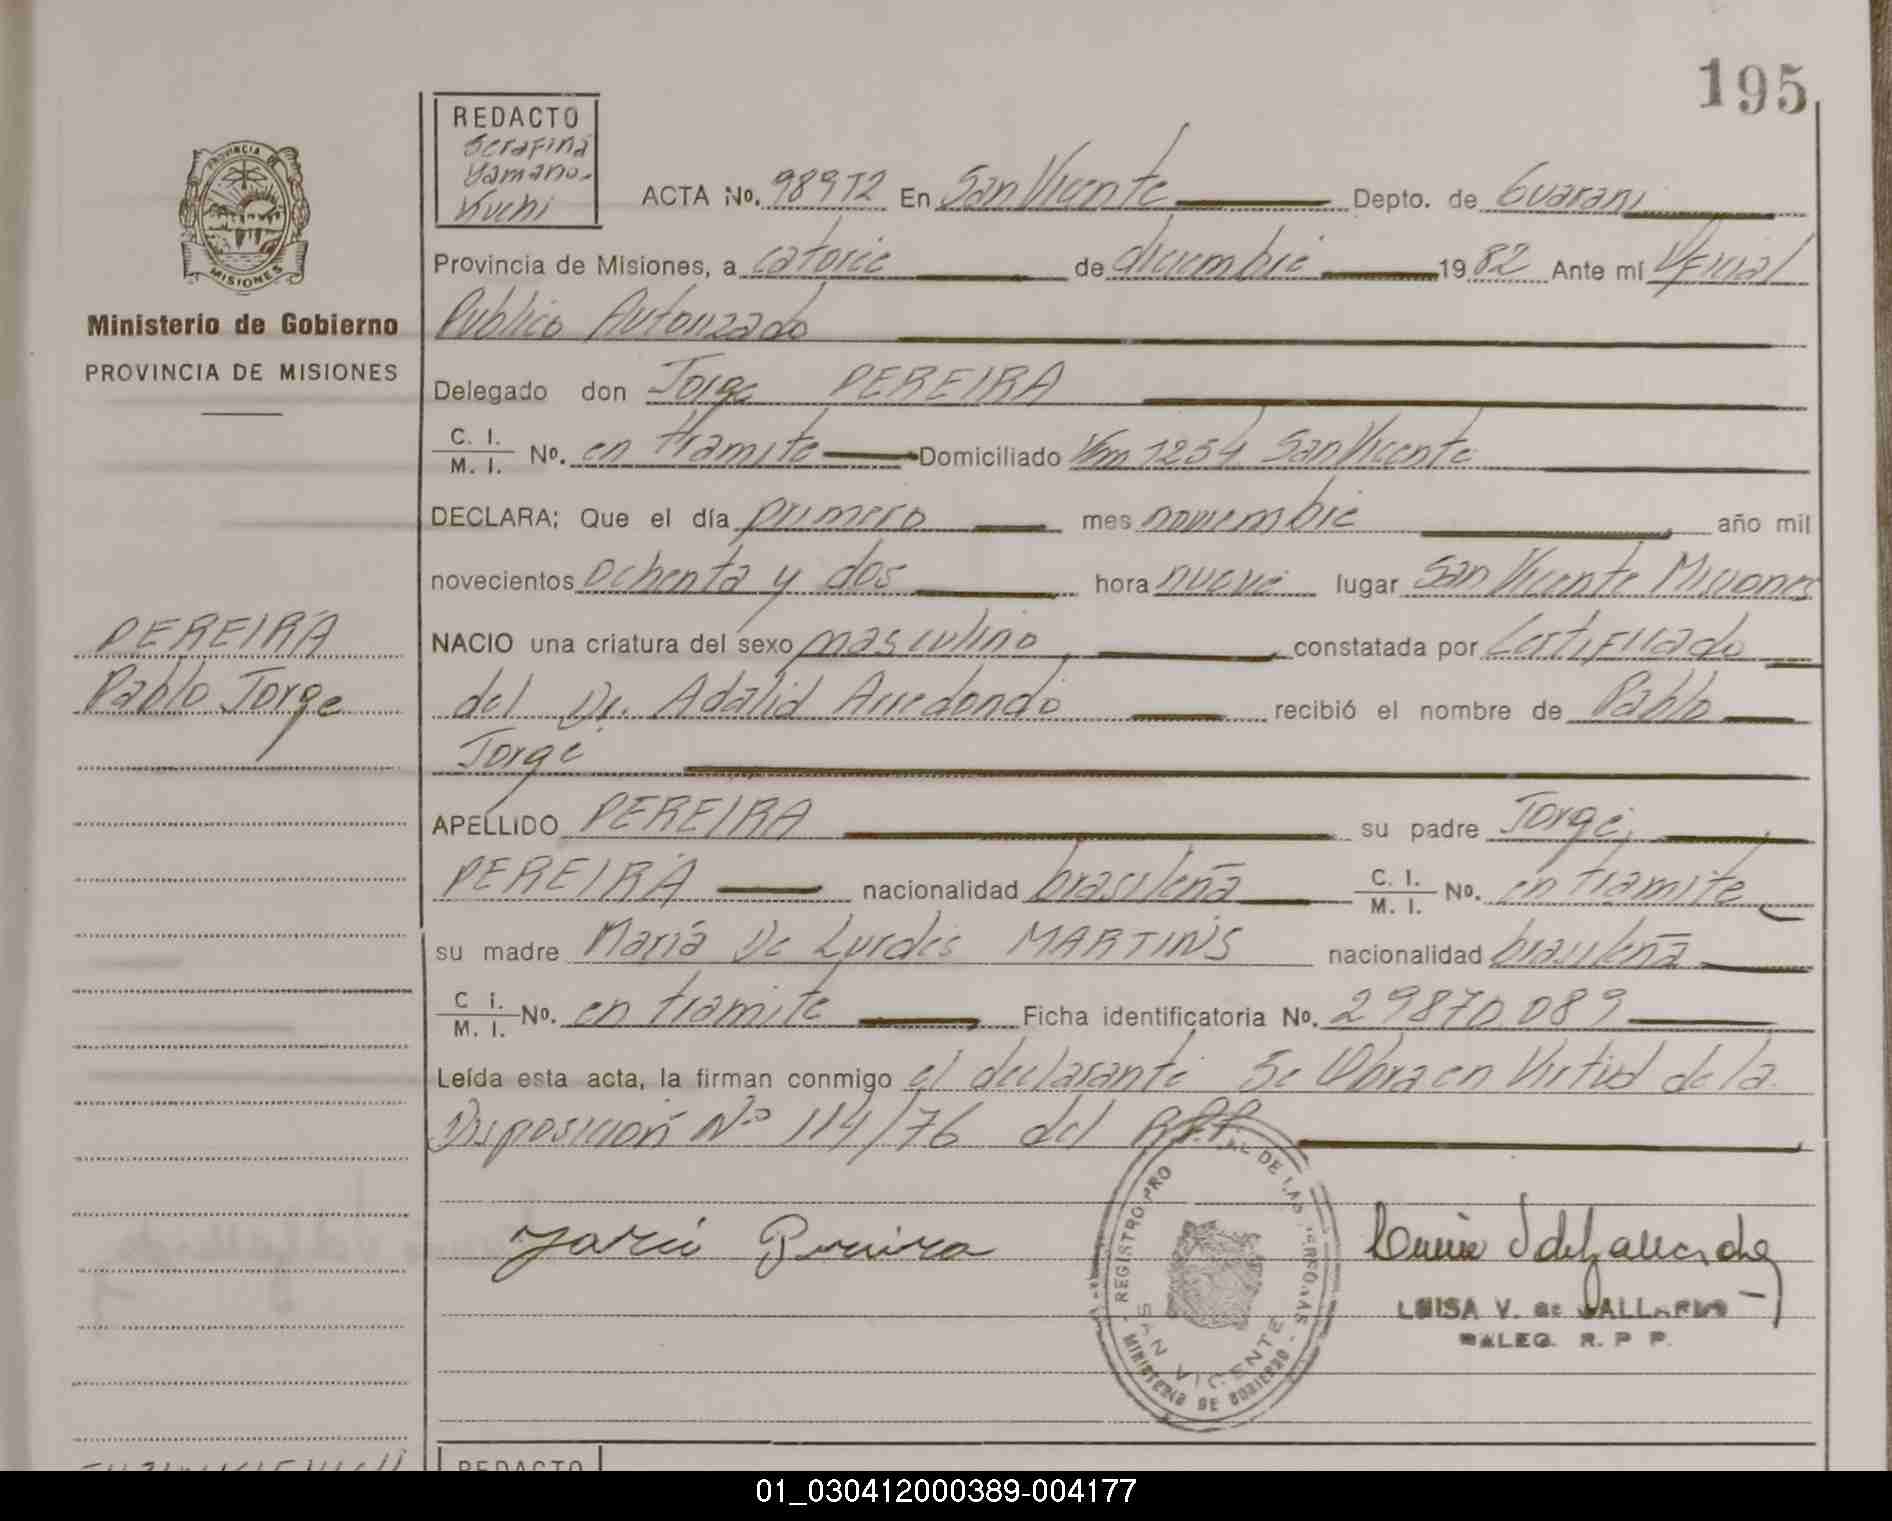 195
REDACTO
Serafina
Yamano-
Kuchi
PROVINCIA DE
MISIONES
Ministerio de Gobierno
PROVINCIA DE MISIONES
PEREIRA
Pablo Jorge
ACTA No. 98972 En San Vicente Depto. de Guarani
Provincia de Misiones, a catorce de diciembre 1982 Ante mí Oficial
Publico Autorizado
Delegado don Jorge PEREIRA
C. I. / M. I. No. en tramite Domiciliado Km 1254 San Vicente
DECLARA; Que el día primero mes noviembre año mil
novecientos ochenta y dos hora nueve lugar San Vicente Misiones
NACIO una criatura del sexo masculino, constatada por Certificado
del Dr. Adalid Arredondo recibió el nombre de Pablo
Jorge
APELLIDO PEREIRA su padre Jorge,
PEREIRA nacionalidad brasileña C. I. / M. I. No. en tramite
su madre María De Lurdes MARTINS nacionalidad brasileña
C i. / M. I. No. en tramite Ficha identificatoria No. 29870.089
Leída esta acta, la firman conmigo el declarante Se Obra en Virtud de la
Disposición Nº 114/76 del R.P.P.
Pereira
REGISTRO PRO AL DE LAS PERSONAS
SAN VICENTE
MINISTERIO DE GOBIERNO
LUISA V. de GALLARDO
DALEG. R. P P.
REDACTO
01_030412000389-004177